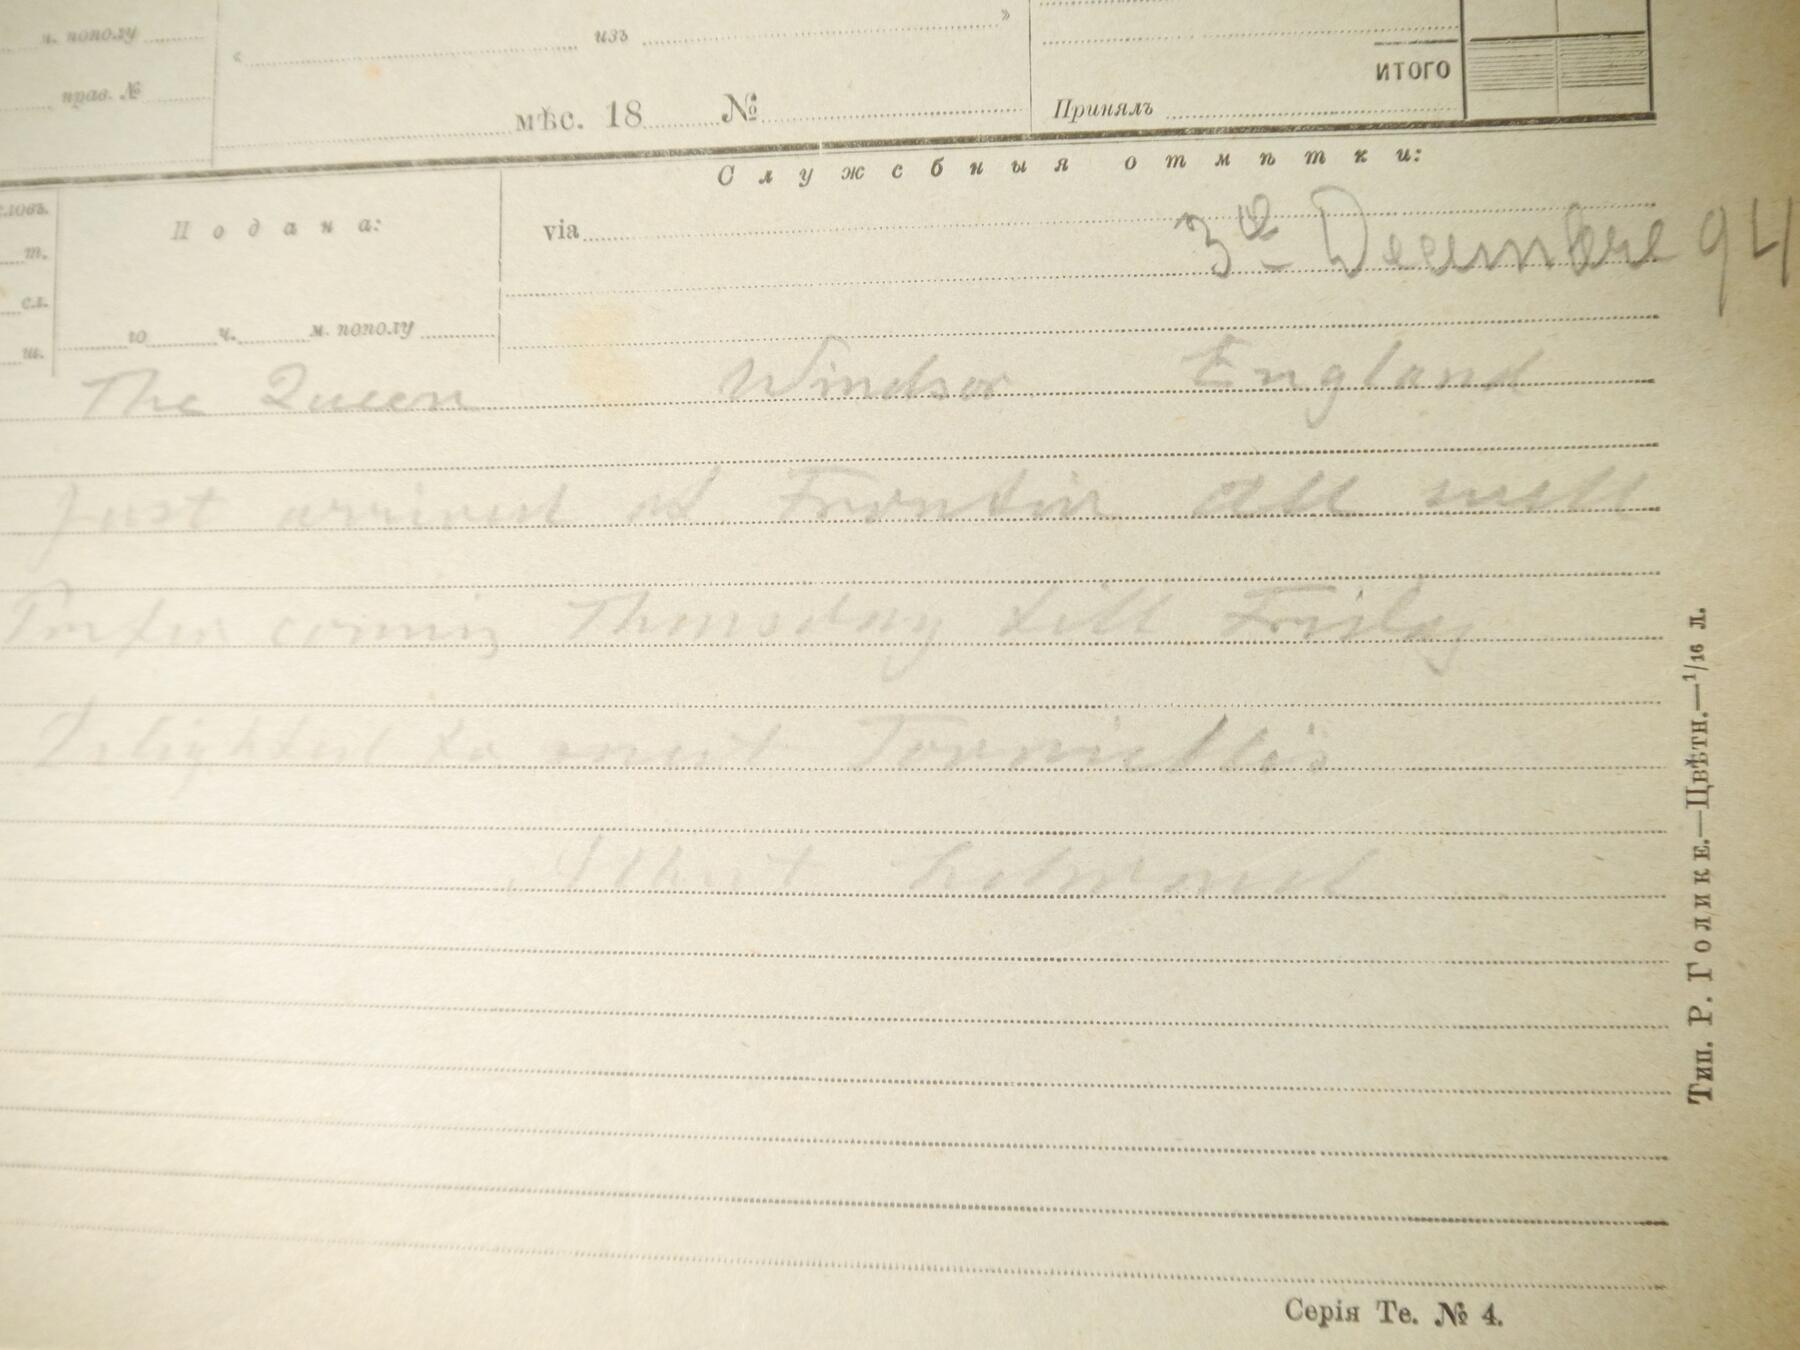 ч. пополу
« из »
прав. №
ИТОГО
мѣс. 18 №
Принялъ
Служебныя отмѣтки:
словъ.
Подана:
via
3d Decembre 94
т.
сл.
го ч. м. пополу
ш.
The Queen Windsor England
Just arrived at Frontier All well
Prefer coming Thursday till Friday
Delighted to meet Torniellis
Albert Edward
Тип. Р. Голике.—Цвѣтн.—1/16 л.
Серія Те. № 4.